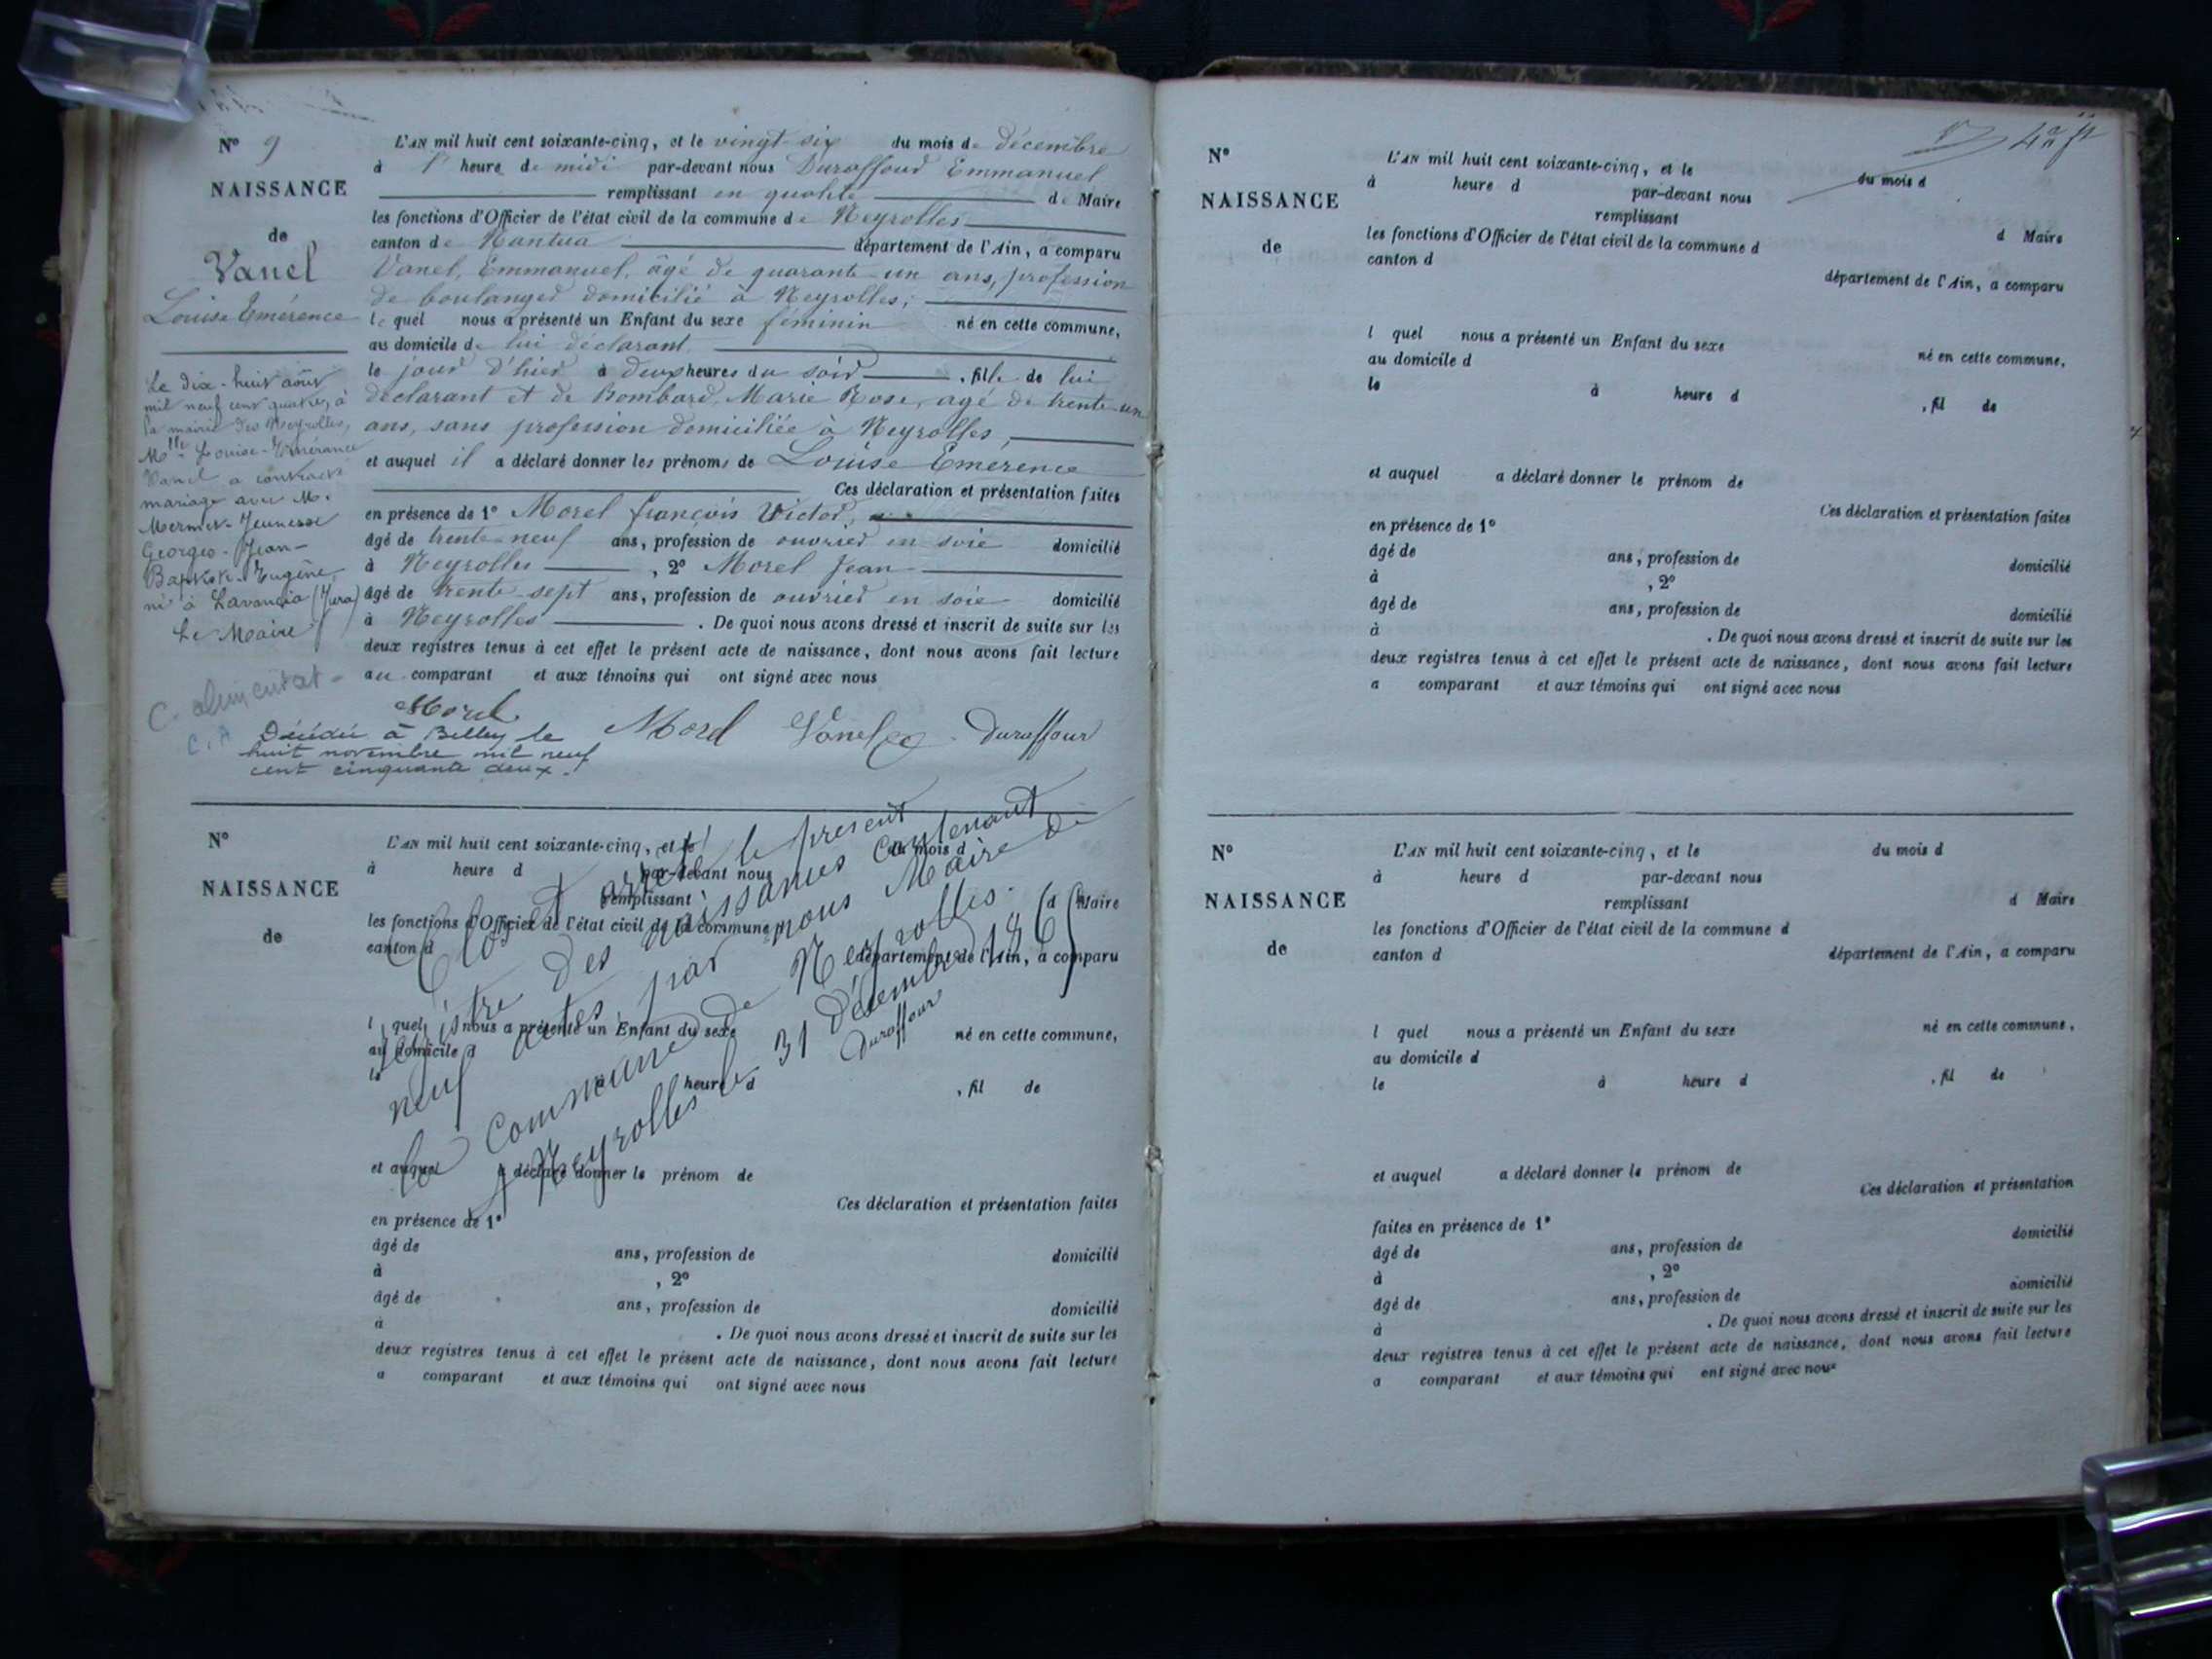 N° 9
NAISSANCE
de
Vanel
Louise Emérence
L'AN mil huit cent soixante-cinq, et le vingt-six du mois de décembre
à l' heure de midi par-devant nous Duraffourd Emmanuel
remplissant en qualité de Maire
les fonctions d'Officier de l'état civil de la commune de Neyrolles
canton de Nantua département de l'Ain, a comparu
Vanel, Emmanuel, âgé de quarante-un ans, profession
de boulanger domicilié à Neyrolles;
lequel nous a présenté un Enfant du sexe féminin né en cette commune,
au domicile de lui déclarant
le jour d'hier à deux heures du soir, fille de lui
déclarant et de Bombard, Marie Rose, agé de trente-un
ans, sans profession domiciliée à Neyrolles,
et auquel il a déclaré donner les prénoms de Louise Emérence
Ces déclaration et présentation faites
en présence de 1° Morel françois Victor,
âgé de trente-neuf ans, profession de ouvrier en soie domicilié
à Neyrolles, 2° Morel Jean
âgé de trente-sept ans, profession de ouvrier en soie domicilié
à Neyrolles. De quoi nous avons dressé et inscrit de suite sur les
deux registres tenus à cet effet le présent acte de naissance, dont nous avons fait lecture
au comparant et aux témoins qui ont signé avec nous
Le dix-huit août
mil neuf cent quatre, à
la mairie des Neyrolles,
Mlle Louise-Emérance
Vanel a contracté
mariage avec M.
Mermet-Jeunesse
Georges-Jean-
Baptiste-Eugène,
né à Lavancia (Jura)
Le Maire
C. A
Morel
Morel Vanel Duraffour
Décédée à Belley le
huit novembre mil neuf
cent cinquante deux.
N°
NAISSANCE
de
L'AN mil huit cent soixante-cinq, et le du mois d
à heure d par-devant nous
remplissant d Maire
les fonctions d'Officier de l'état civil de la commune d
canton d département de l'Ain, a comparu
l quel nous a présenté un Enfant du sexe né en cette commune,
au domicile d
le à heure d , fil de
et auquel a déclaré donner le prénom de
Ces déclaration et présentation faites
en présence de 1°
âgé de ans, profession de domicilié
à , 2°
âgé de ans, profession de domicilié
à . De quoi nous avons dressé et inscrit de suite sur les
deux registres tenus à cet effet le présent acte de naissance, dont nous avons fait lecture
a comparant et aux témoins qui ont signé avec nous
Clos et arrêté le présent
registre des naissances contenant
neuf actes par nous Maire de
la Commune de Neyrolles.
Neyrolles le 31 Décembre 1865
Duraffour
N°
NAISSANCE
de
L'AN mil huit cent soixante-cinq, et le du mois d
à heure d par-devant nous
remplissant d Maire
les fonctions d'Officier de l'état civil de la commune d
canton d département de l'Ain, a comparu
l quel nous a présenté un Enfant du sexe né en cette commune,
au domicile d
le à heure d , fil de
et auquel a déclaré donner le prénom de
Ces déclaration et présentation faites
en présence de 1°
âgé de ans, profession de domicilié
à , 2°
âgé de ans, profession de domicilié
à . De quoi nous avons dressé et inscrit de suite sur les
deux registres tenus à cet effet le présent acte de naissance, dont nous avons fait lecture
a comparant et aux témoins qui ont signé avec nous
N°
NAISSANCE
de
L'AN mil huit cent soixante-cinq, et le du mois d
à heure d par-devant nous
remplissant d Maire
les fonctions d'Officier de l'état civil de la commune d
canton d département de l'Ain, a comparu
l quel nous a présenté un Enfant du sexe né en cette commune,
au domicile d
le à heure d , fil de
et auquel a déclaré donner le prénom de
Ces déclaration et présentation
faites en présence de 1°
âgé de ans, profession de domicilié
à , 2°
âgé de ans, profession de domicilié
à . De quoi nous avons dressé et inscrit de suite sur les
deux registres tenus à cet effet le présent acte de naissance, dont nous avons fait lecture
a comparant et aux témoins qui ont signé avec nous